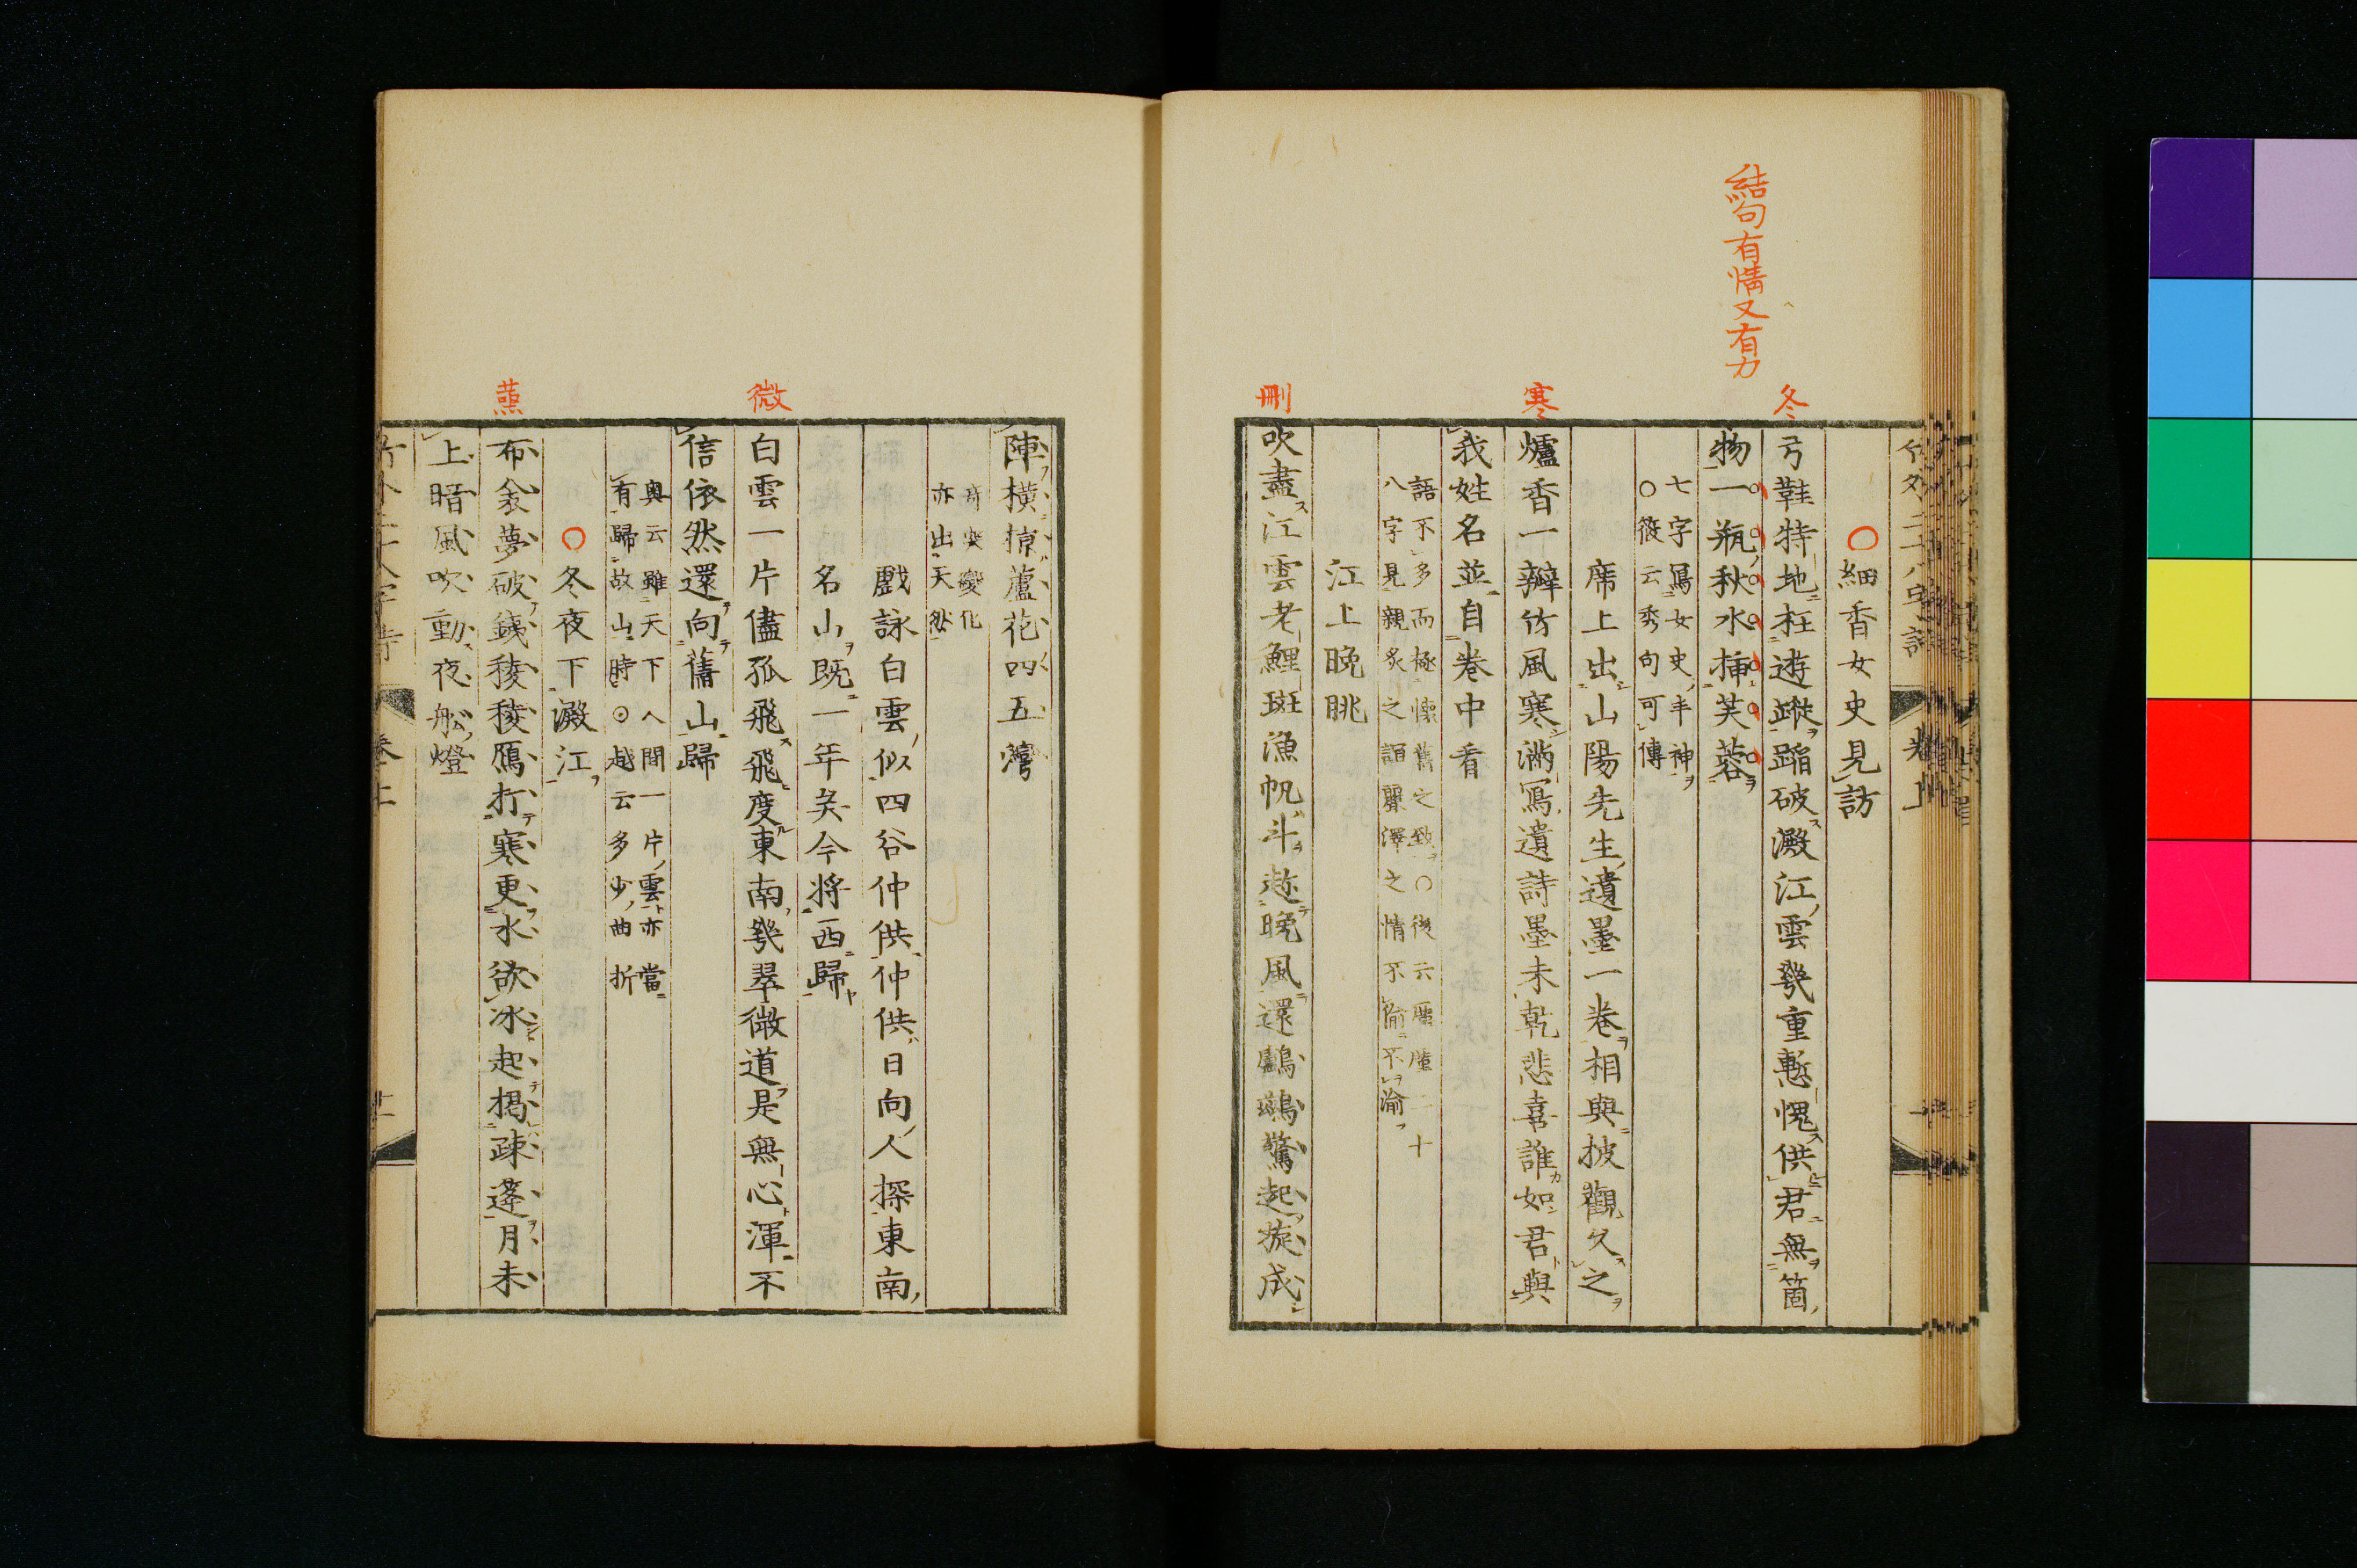 結句有情又有力
冬
寒
刪
○細香女史見訪
弓鞋特地枉遊蹤蹈破澱江雲幾重慙愧供君無箇
物一瓶秋水揷芙蓉
七字寫女史丰神
○筱云秀句可傳
席上出山陽先生遺墨一卷相與披觀久之
爐香一瓣竹風寒滿寫遺詩墨未乾悲喜誰如君與
我姓名並自卷中看
語不多而極懷舊之致○後云二十
八字見親炙之麗澤之情不偷不渝
江上晚眺
吹盡江雲老鯉斑漁帆斗趂晚風還鸕鷀驚起旋成
微
蒸
陣橫掠蘆花四五灣
變化
亦出天然
戲詠白雲似四谷仲供仲供日向人探東南
名山既一年矣今將西歸
白雲一片儘孤飛飛度東南幾翠微道是無心渾不
信依然還向舊山歸
奧云雖天下人間一片雲亦當
有歸故山時⊙越云多少曲折
○冬夜下澱江
布衾夢破錢稜稜鴈打寒更水欲冰起揭疎篷月未
上暗風吹動夜船燈